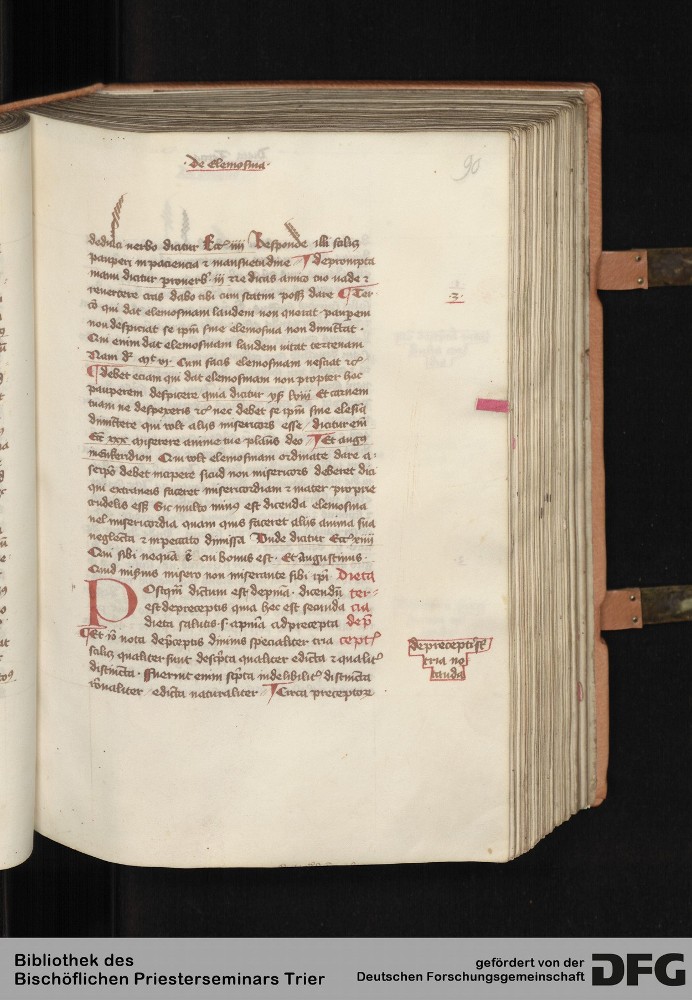 de elemosina
90
verbo dicitur Eccī iiii Responde illi
pauperi in paciencia ⁊ mansuetudine ¶ de prompta
manu dicitur proverb iii ne dicas amico tuo vade ⁊
revertere cras dabo tibi cum statim possis dare ¶ Ter
3
cō qui dat elemosinam laudem non querat pauperem
non despiciat se ipm sine elemosina non dimittat
Qui enim dat elemosinam laudem vitat terrenam
Nam dr Mt vi Cum facis elemosinam nesciat
¶ debet eciam qui dat elemosinam non propter hec
pauperem despicere quia dicitur ys lviii Et carnem
tuam ne despexeris nec debet se ipm sine elesia
dimittere qui volt aliis misericors esse dicitur eni
Ecc xxx Miserere anime tue placens deo ¶ Et augu
in enkeridion Qui volt elemosinam ordinate dare a
seipo debet incipere sicud non misericors deberet dici
qui extraneis faceret misericordiam ⁊ mater proprie
crudelis esset Sic multo minus est dicenda elemosina
vel misericordia quam quis faceret aliis anima sua
neglecta ⁊ in peccato dimissa Unde dicitur Eccī xiiii
Qui sibi nequam ē cui bonus est Et Augustinus
Quid miserius misero non miserante sibi ipi Dieta
Postqm dictum est de pnia dicendum ter
est de preceptis quia hec est secunda cia
dieta salutis s a pnia ad precepta de p
¶ Et iō nota de preceptis divinis specialiter tria cept
de preceptis
tria no
tanda
qualiter sunt descripta qualiter edicta ⁊ qualiter
distincta fuerunt enim scripta indelibiliter distincta
edicta naturaliter ¶ Circa preceptorum
Bibliothek des
Bischöflichen Priesterseminars Trier
gefördert von der
Deutschen Forschungsgemeinschaft
DFG